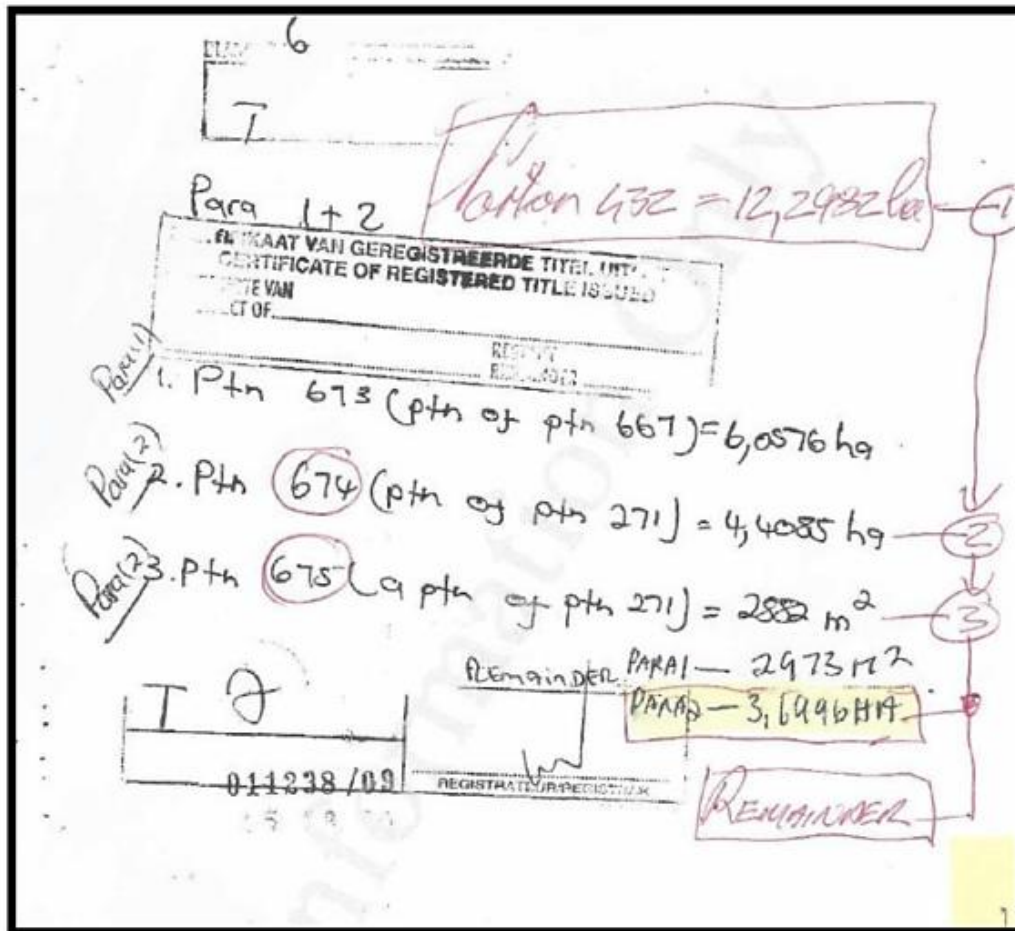 6
T
Portion 432 = 12,2982ha — 1
Para 1+2
KAAT VAN GEREGISTREERDE TITEL
CERTIFICATE OF REGISTERED TITLE ISSUED
TE VAN
CT OF
Para(1)
1. Ptn 673 (ptn of ptn 667) = 6,0576 ha
Para(2)
2. Ptn 674 (ptn of ptn 271) = 4,4085 ha — 2
Para(2)
3. Ptn 675 (a ptn of ptn 271) = 2882 m² — 3
REmainDER PARA1 — 2973 M²
PARA2 — 3,6996 HA
T
011238/09
REGISTRATEUR/REGISTRAR
REMAINDER
1